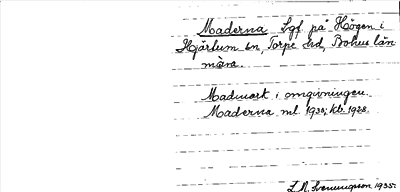 Maderna Lgf på Högen i
Hjärtum sn, Torpe hd, Bohus län
mära.
Madmark i omgivningen.
Maderna ml. 1935; kb. 1938.
1935.